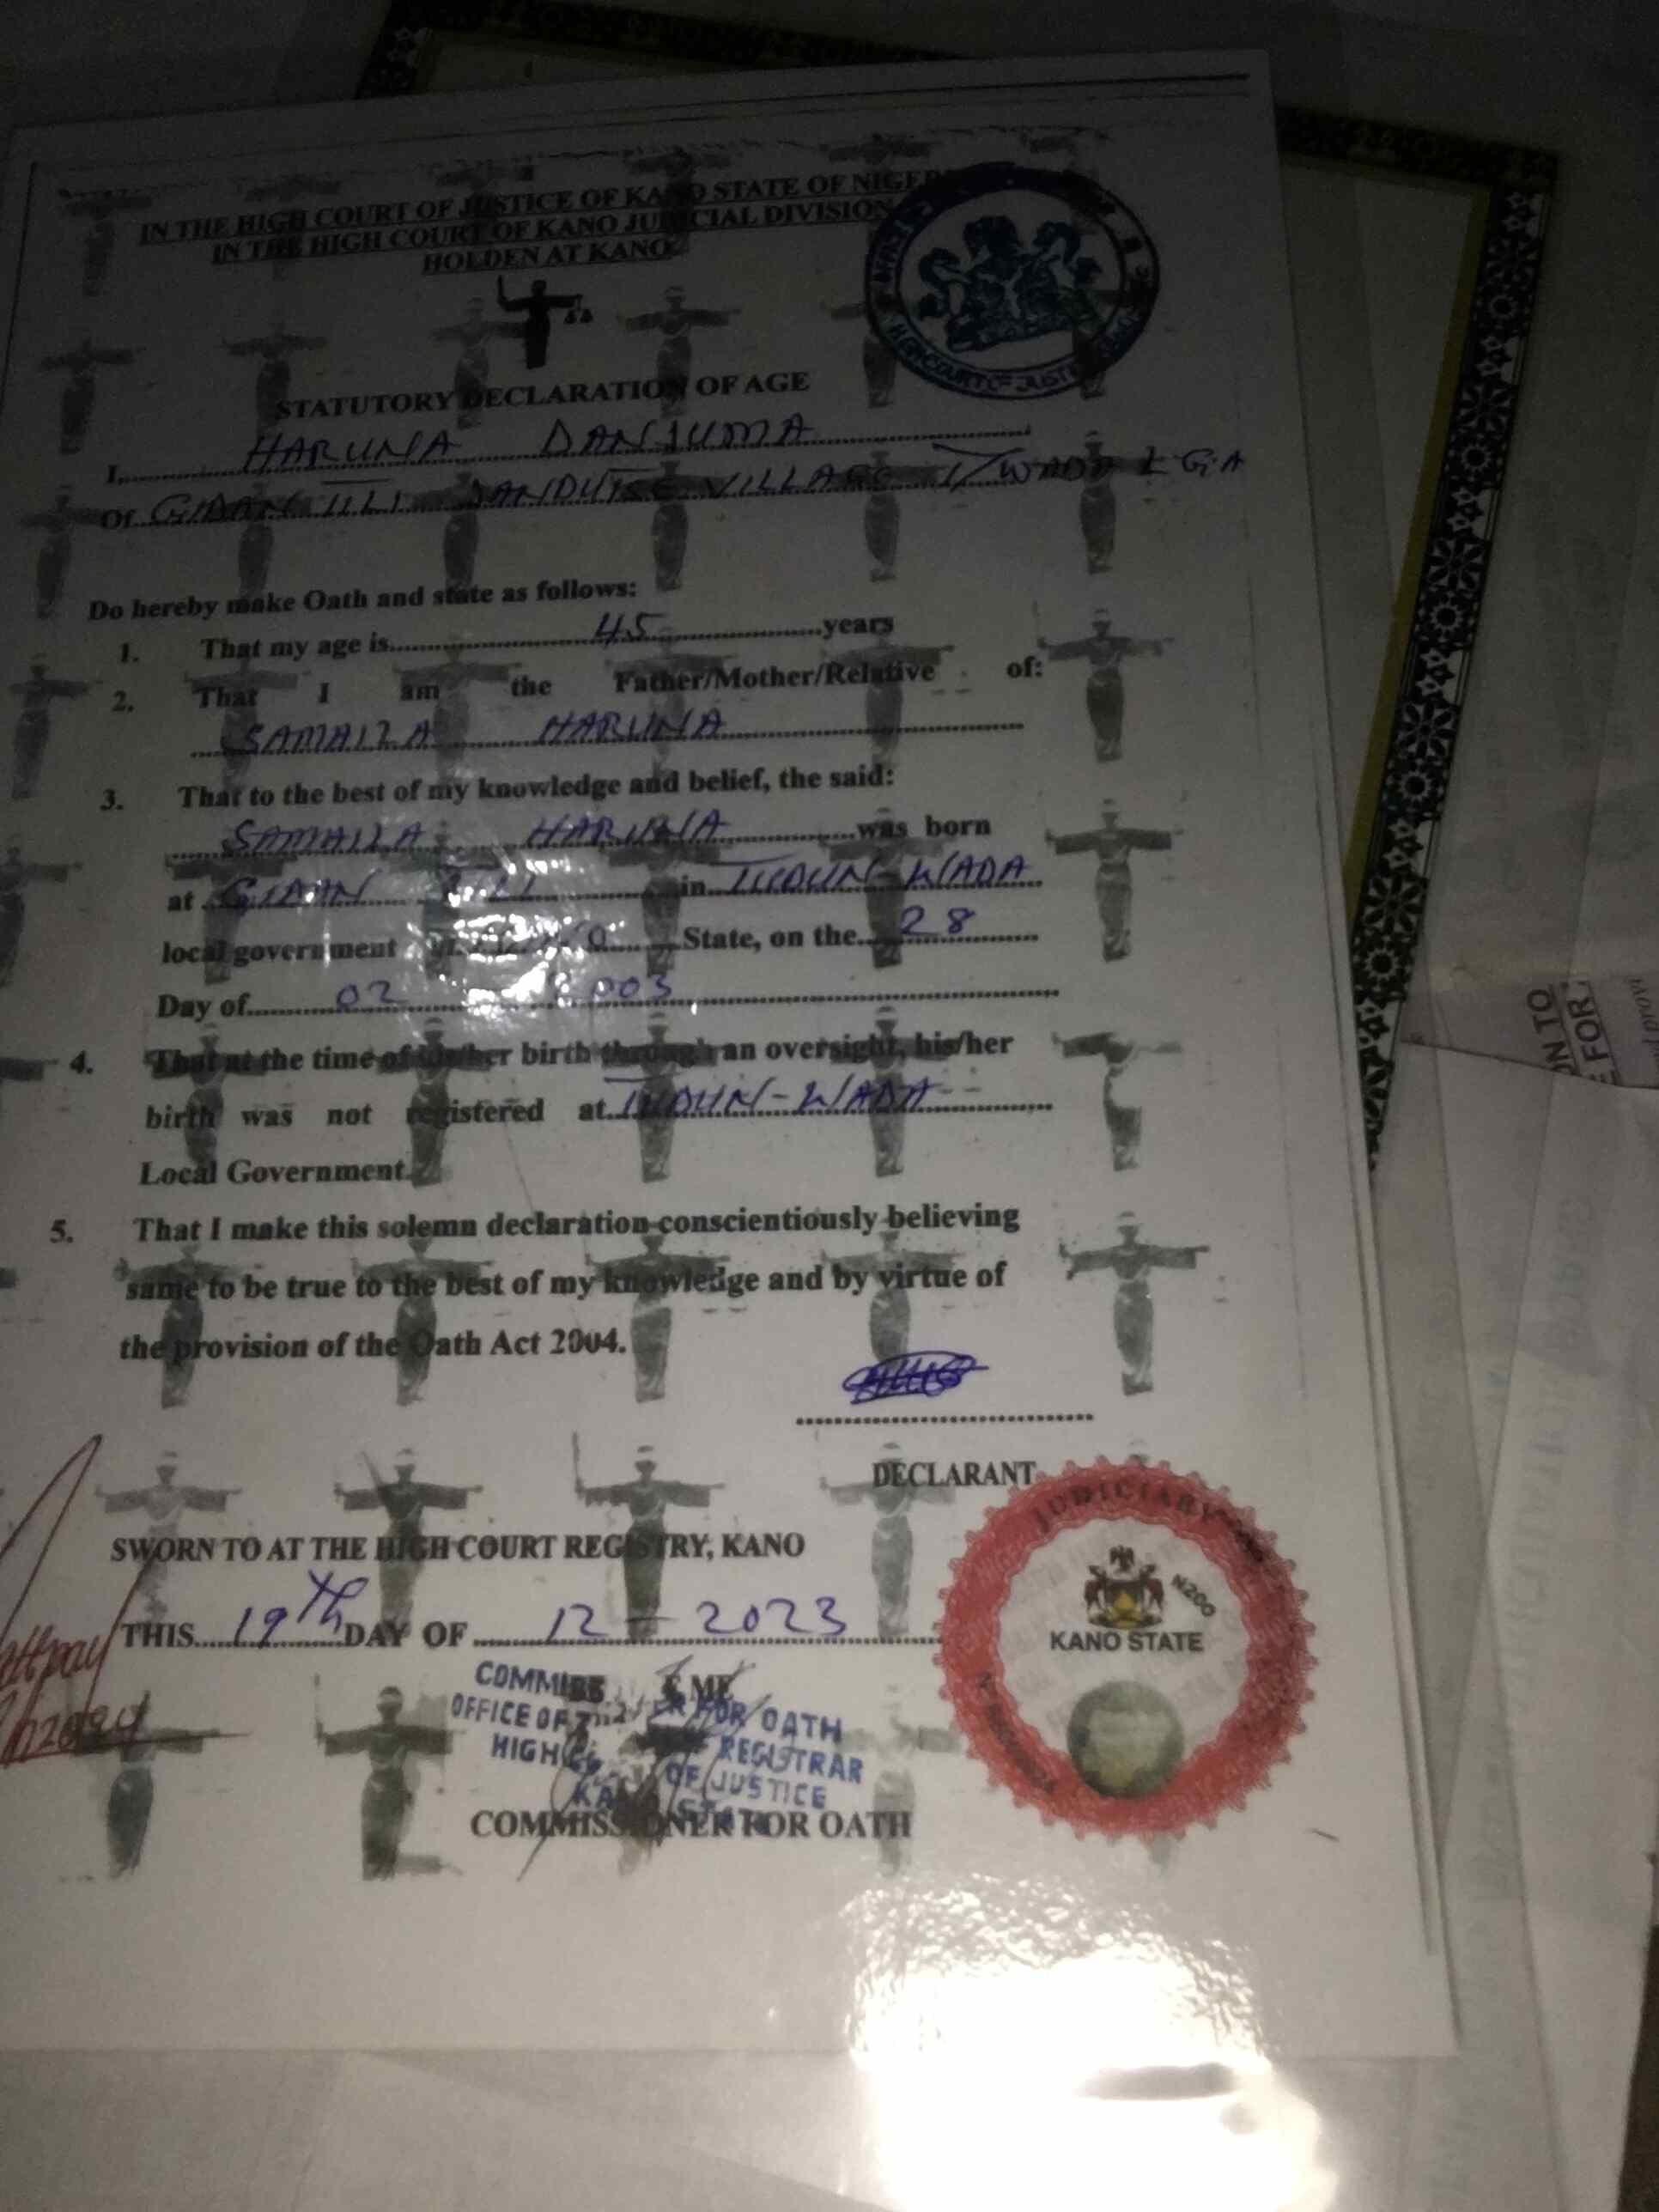 IN THE HIGH COURT OF JUSTICE OF KANO STATE OF NIGER
IN THE HIGH COURT OF KANO JUDICIAL DIVISION
HOLDEN AT KANO
HIGH COURT OF JUSTICE
STATUTORY DECLARATION OF AGE
I, HARUNA DANJUMA
Of GIDAN VILLAGE T/WADA LGA
Do hereby make Oath and state as follows:
1. That my age is 45 years
2. That I am the Father/Mother/Relative of:
SAMAILA HARUNA
3. That to the best of my knowledge and belief, the said:
SAMAILA HARUNA was born
at GIDAN in TUDUN-WADA
local government State, on the 28
Day of 02
4. That at the time of his/her birth through an oversight, his/her
birth was not registered at TUDUN-WADA
Local Government.
5. That I make this solemn declaration conscientiously believing
same to be true to the best of my knowledge and by virtue of
the provision of the Oath Act 2004.
DECLARANT
SWORN TO AT THE HIGH COURT REGISTRY, KANO
THIS 19th DAY OF 12 - 2023
JUDICIARY
N200
KANO STATE
FOR OATH
OFFICE OF REGISTRAR
HIGH OF JUSTICE
COMMISSIONER FOR OATH
ON TO
FOR